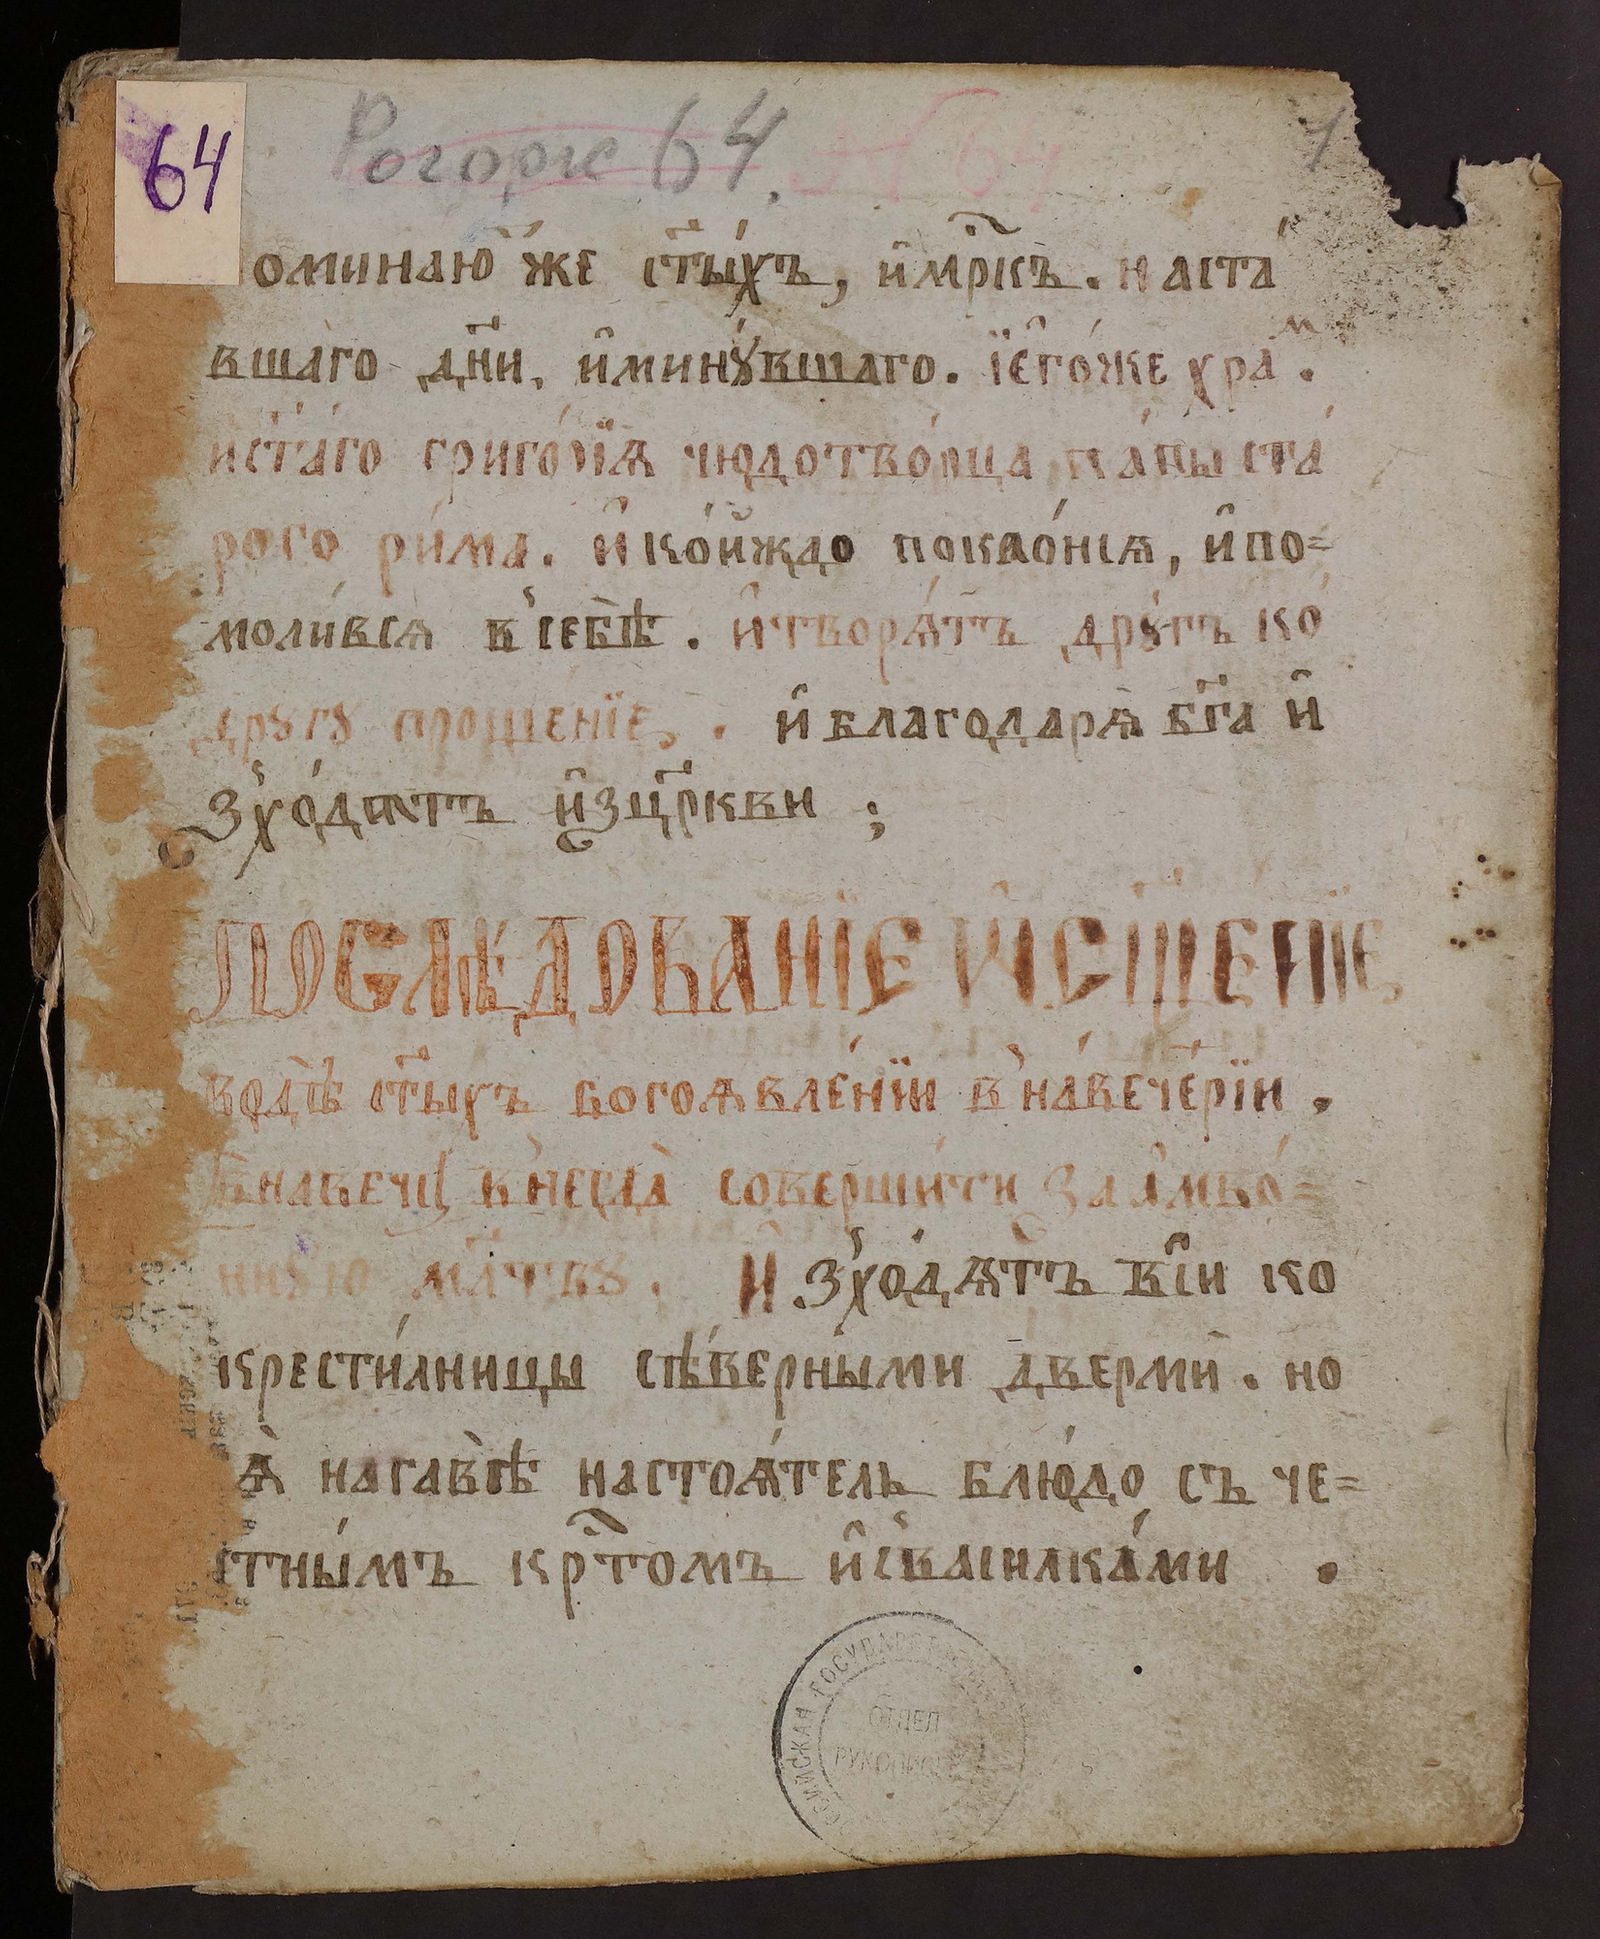 64
Рогорж 64. № 64
1
оминаю҆ же ст҃ы́хъ, и҆ мр҃къ. наста́
вша̀го дн҃и, и҆ мину́вшаго. їєго́же хра́ м.
и ст҃а́го григо́рїѧ чюдотво́рца па́пы ста́
рого ри́ма. и҆ ко́йждо поклонѧ́сѧ, и҆ по=
моли́всѧ в себѣ̀. и҆ творѧ́тъ дру́гъ ко
другу проще́нїе. и҆ благодарѧ̀ бг҃а и҆
зхо́дѧтъ и҆з цр҃кви ;
послѣдованїе и҆ ѡ҆сщ҃енїе
водѣ̀ ст҃ыхъ богоѧвле́нїи в наве́чрїи.
совершити заамво́=
нную мл҃тву. И зхо́дѧтъ вси̑ ко
крести́лницы сѣ́верными двермѝ. но
ѧ̀ на главѣ̀ настоѧ́тель блю́до съ че=
стны́мъ кр҃томъ и҆ с василка́ми .
ОТДЕЛ
РУКОПИС